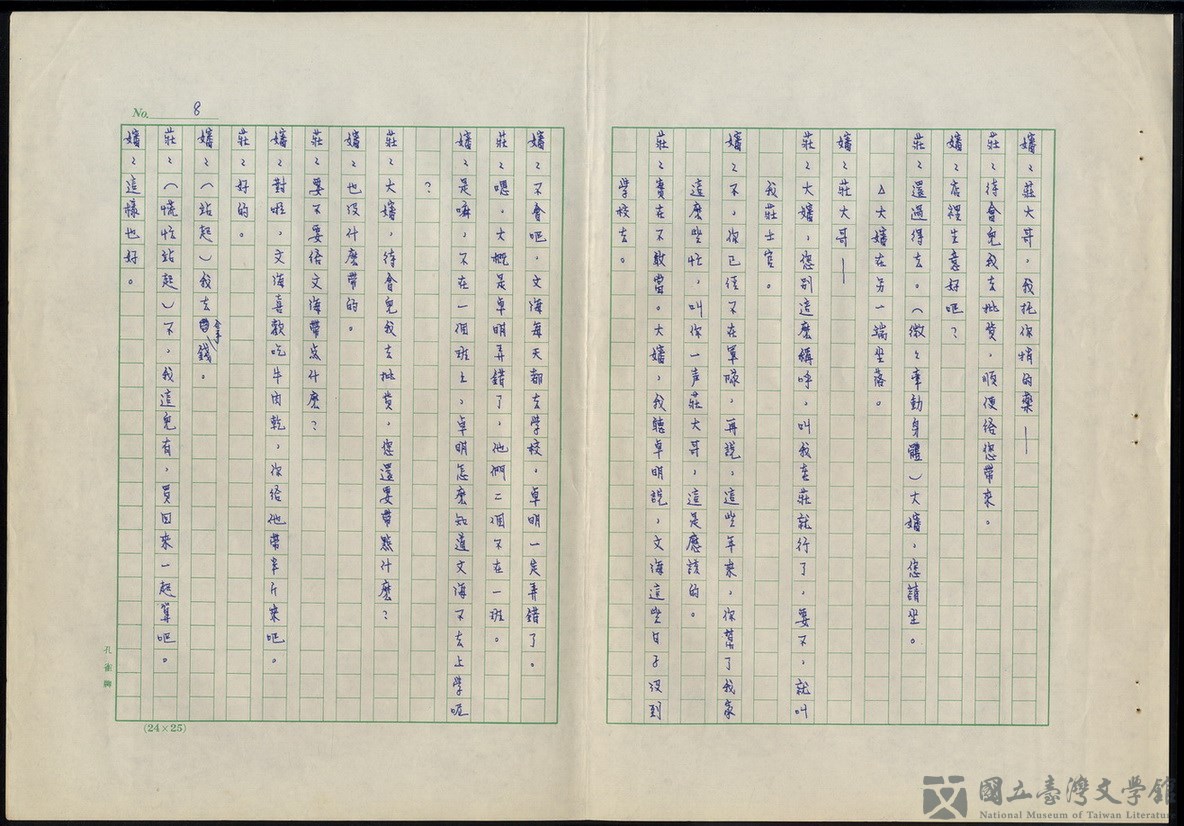 No. 8
嬸：莊大哥，我托你捎的藥—
莊：待會兒我去批貨，順便给您帶來。
嬸：店裡生意好吧？
莊：還過得去。（微々牽動身體）大嬸，您請坐。
△大嬸在另一端坐落。
嬸：莊大哥—
莊：大嬸，您別這麼稱呼，叫我老莊就行了，要不，就叫
我莊士官。
嬸：不，你已經不在軍隊，再説，這些年來，你幫了我家
這麼些忙，叫你一声莊大哥，這是應該的。
莊：實在不敢當。大嬸，我聽卓明説，文海這些日子沒到
學校去。
嬸：不會吧，文海每天都去學校，卓明一定弄錯了。
莊：嗯，大概是卓明弄錯了，他們二個不在一班。
嬸：是嘛，不在一個班上，卓明怎麼知道文海不去上學呢
？
莊：大嬸，待會兒我去批貨，您還要帶點什麼？
嬸：也沒什麼帶的。
莊：要不要给文海帶点什麼？
嬸：對啦，文海喜歡吃牛肉乾，你给他帶半斤來吧。
莊：好的。
嬸：（站起）我去拿錢。
莊：（慌忙站起）不，我這兒有，買回來一起算吧。
嬸：這樣也好。
孔雀牌
(24×25)
國立臺灣文學館
National Museum of Taiwan Literature